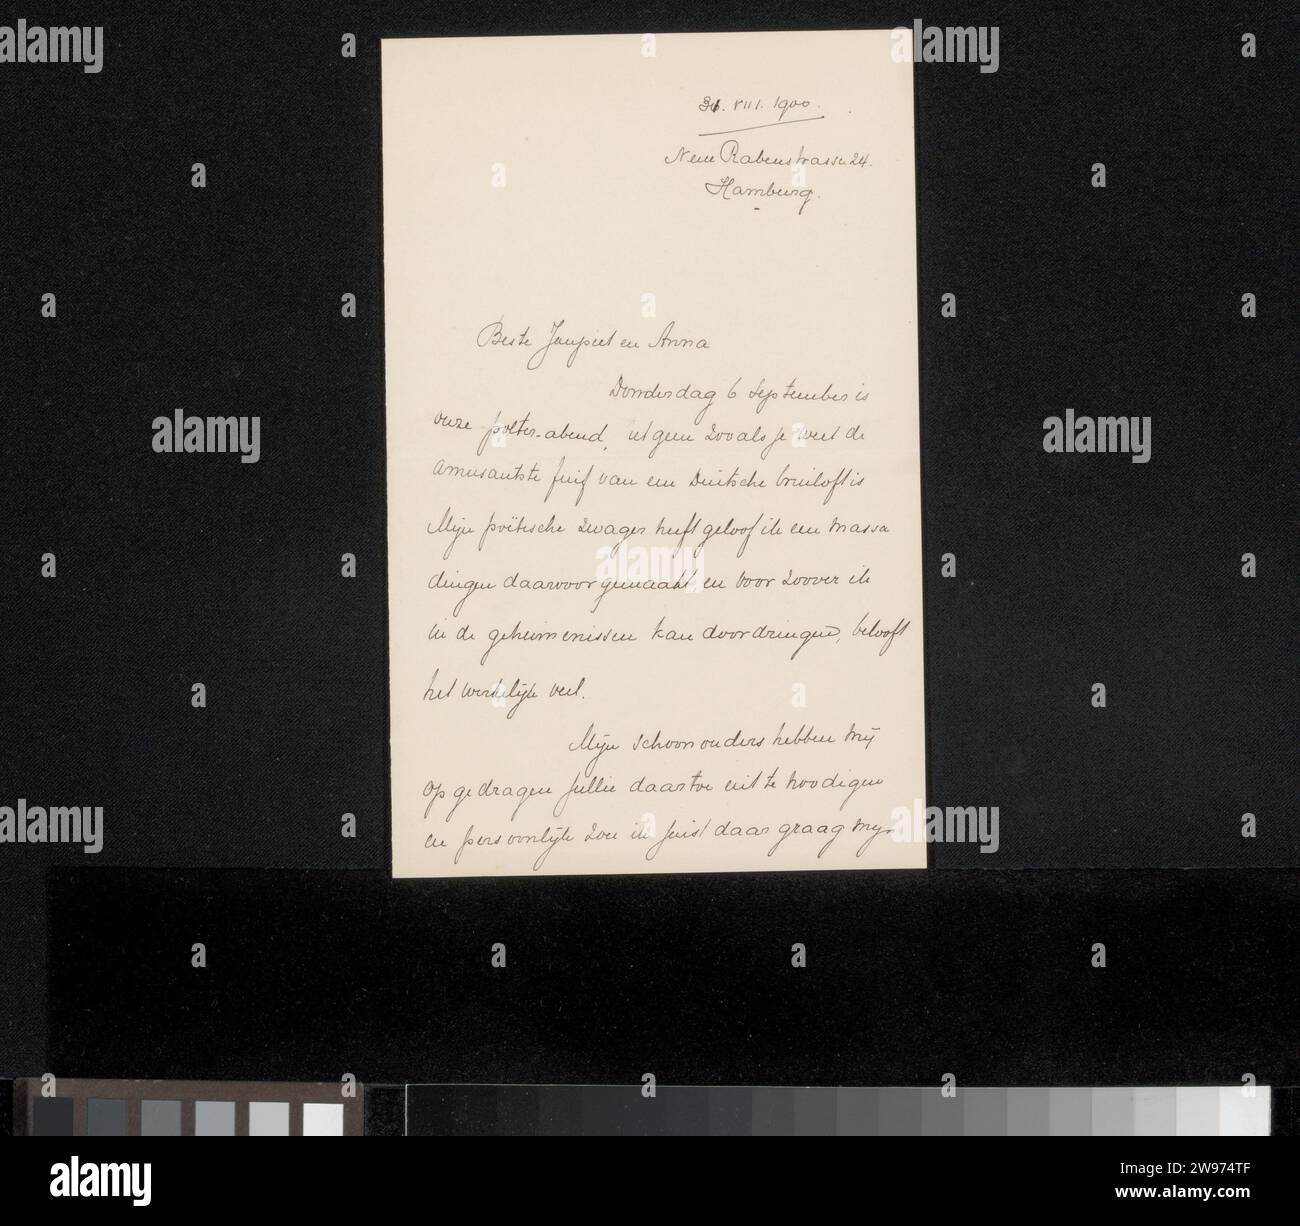 31. VIII. 1900.
Neue Rabenstrasse 24.
Hamburg.
Beste Janpiet en Anna
Donderdag 6 September is
onze polter-abend, 'tgeen zooals je weet de
amusantste fuif van een Duitsche bruiloft is
Mijn poëtische zwager heeft geloof ik een massa
dingen daarvoor gemaakt en voor zoover ik
in de geheimenissen kan doordringen, belooft
het werkelijk veel.
Mijn schoonouders hebben mij
opgedragen jullie daartoe uit te noodigen
en persoonlijk zou ik juist daar graag mijn
alamy
Image ID: 2W974TF
www.alamy.com